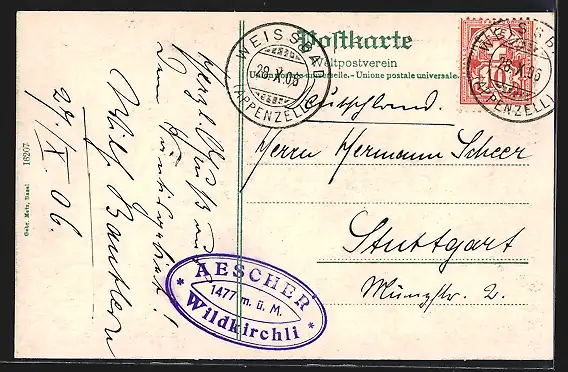 Postkarte
Weltpostverein
Union postale universelle. - Unione postale universale.
WEISSBAD
28.X.06
(APPENZELL)
WEISSBAD
28.X.06
(APPENZELL)
10
Deutschland.
Herrn Hermann Scheer
Stuttgart
Münzstr. 2.
Herzl. Gruß aus
dem
27./X. 06.
AESCHER
1477 m. ü. M.
Wildkirchli
Gebr. Metz, Basel
16207